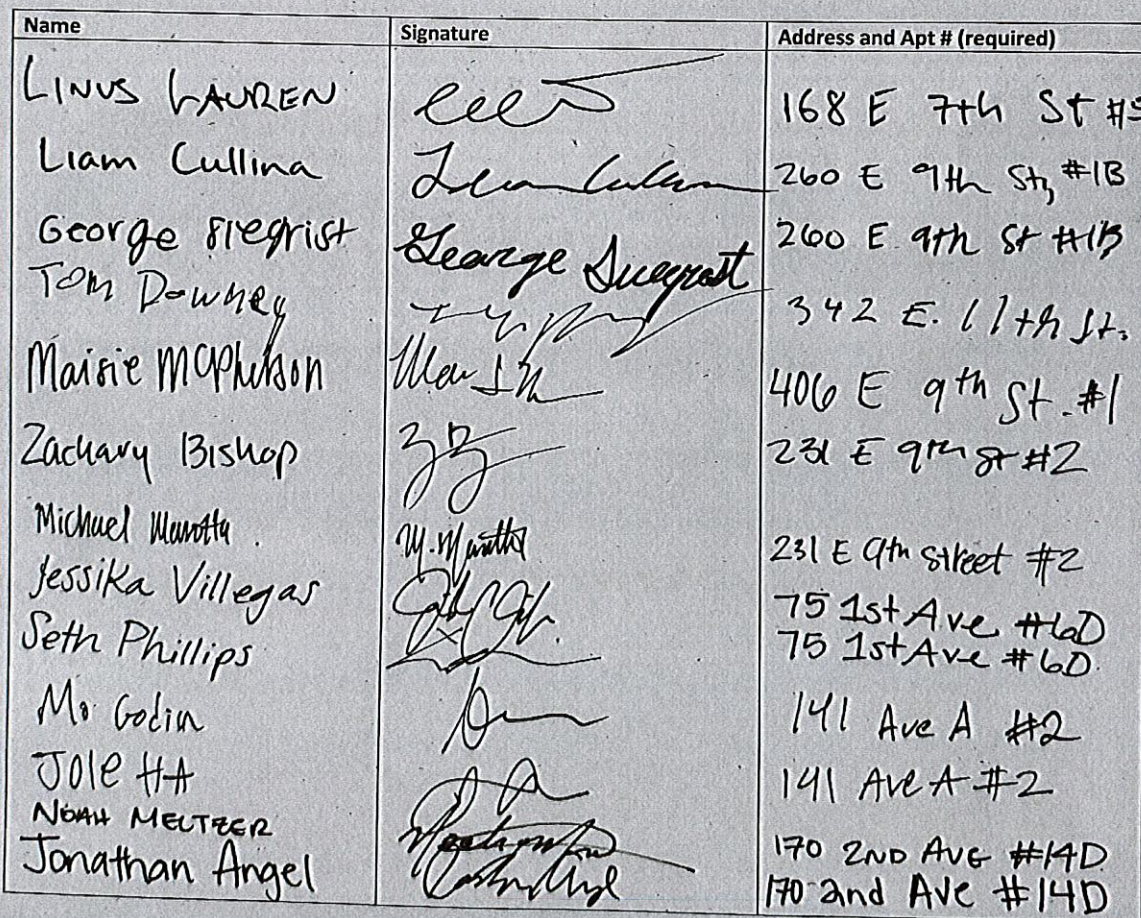 Name Signature Address and Apt # (required)
LINUS LAUREN 168 E 7th St #5
Liam Cullina Liam Cullina 260 E 9th St, #1B
George Siegrist George Siegrist 260 E 9th St #1B
Tom Downey 342 E. 11th St.
Maisie McPherson 406 E 9th St. #1
Zachary Bishop ZB 231 E 9th St #2
Michael Marotta M. Marotta 231 E 9th Street #2
Jessika Villegas 75 1st Ave #6D
Seth Phillips 75 1st Ave #6D
Godin 141 Ave A #2
JOLE HA 141 Ave A #2
NOAH MELTZER 170 2ND AVE #14D
Jonathan Angel 170 2nd Ave #14D